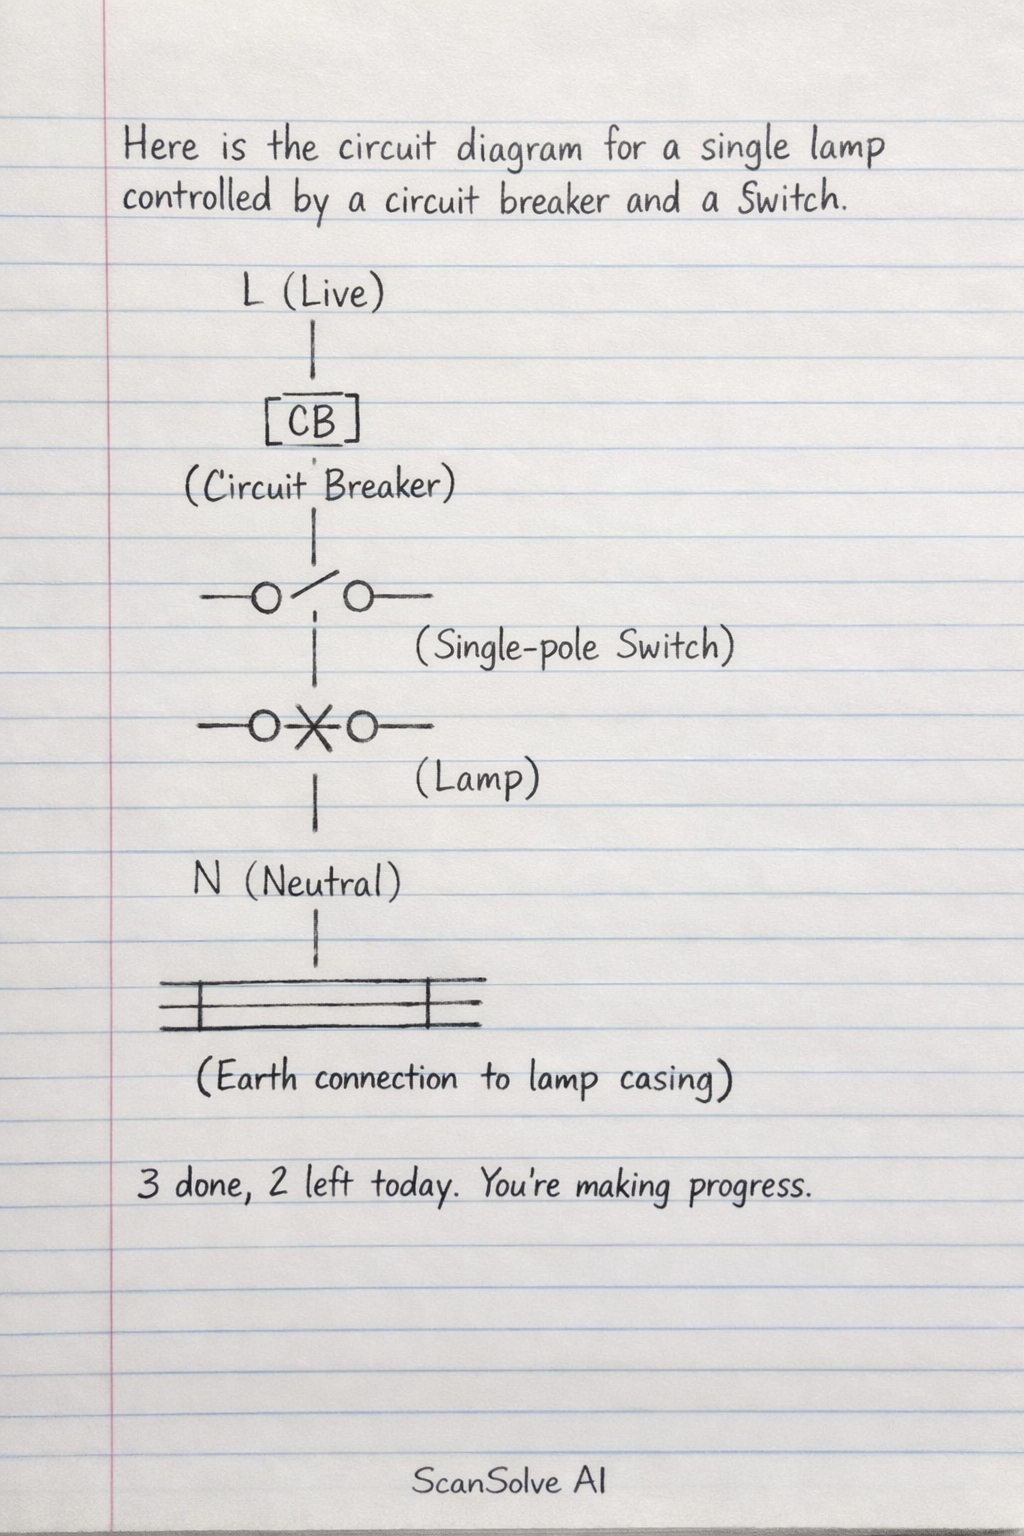 Here is the circuit diagram for a single lamp
controlled by a circuit breaker and a Switch.
L (Live)
[CB]
(Circuit Breaker)
(Single-pole Switch)
(Lamp)
N (Neutral)
(Earth connection to lamp casing)
3 done, 2 left today. You're making progress.
ScanSolve AI